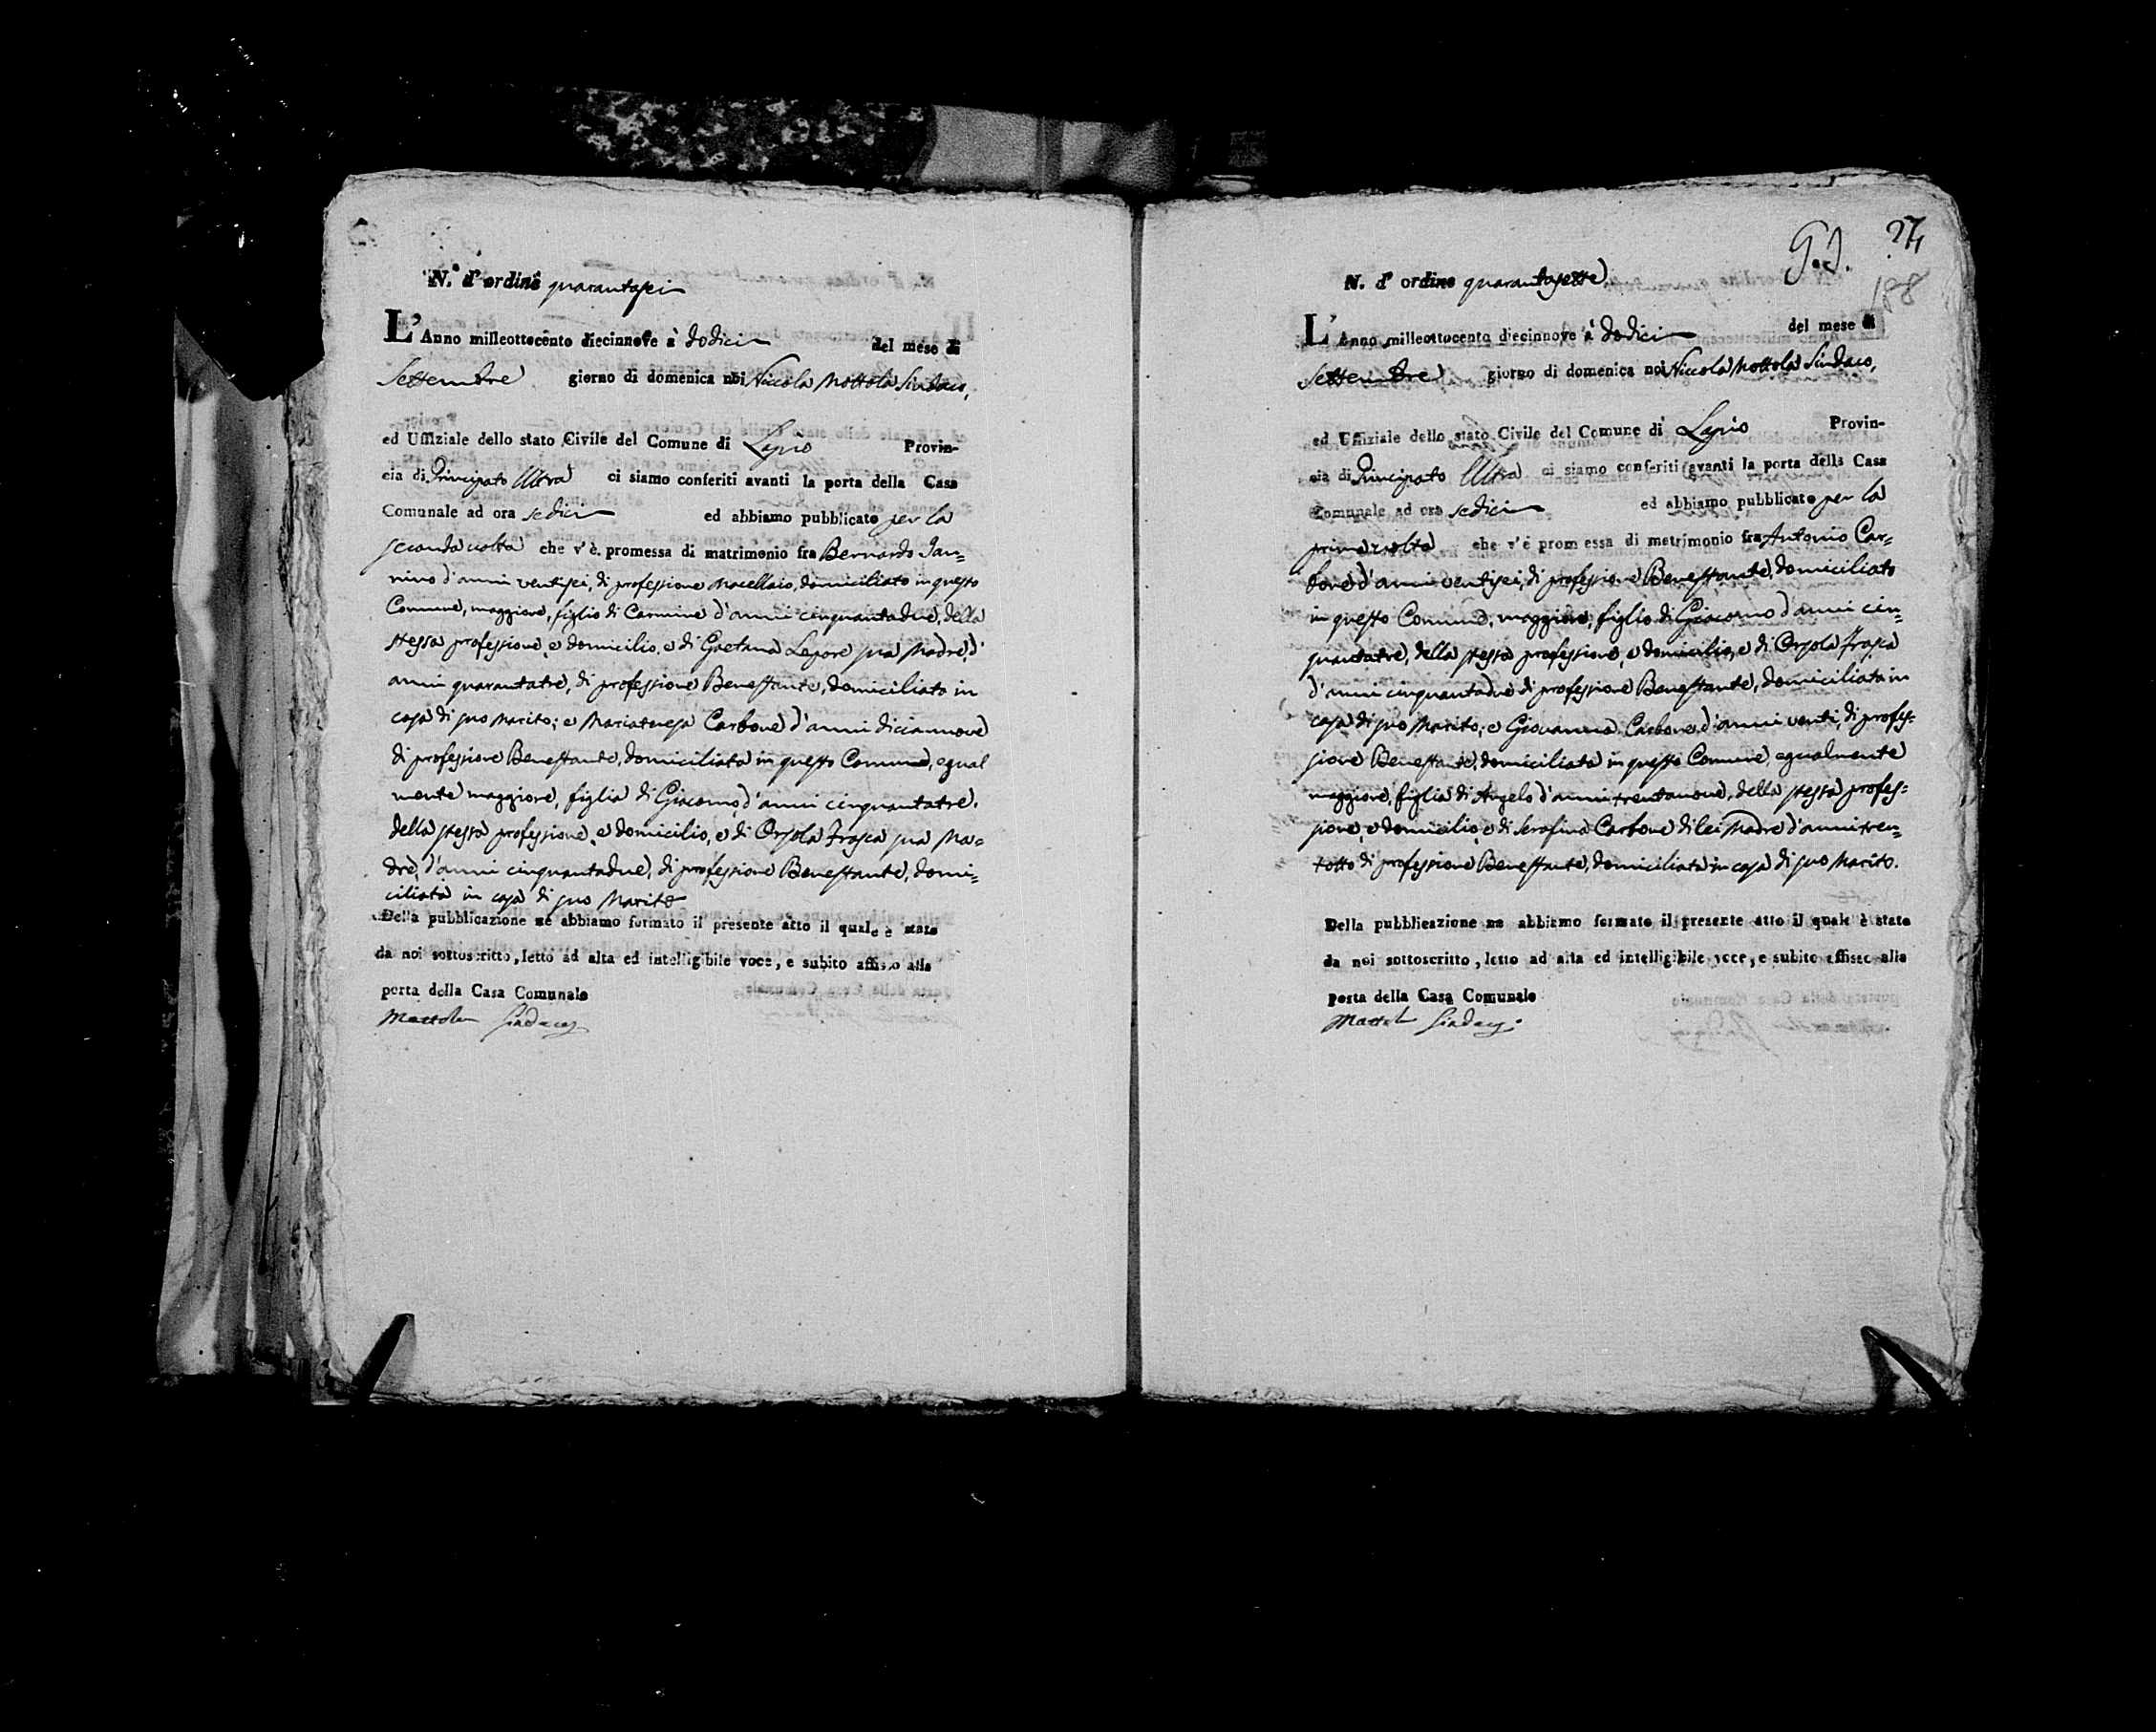 N.° d'ordine quarantasei
L'Anno milleottocento diecinnove à dodici del mese di
Settembre giorno di domenica noi Niccola Mottola Sindaco,
ed Uffiziale dello stato Civile del Comune di Lapio Provin-
cia di Principato Ultra ci siamo conferiti avanti la porta della Casa
Comunale ad ora sedici ed abbiamo pubblicato per la
seconda volta che v'è promessa di matrimonio fra Bernardo Jan=
nino d'anni ventisei, di professione Macellaio, domiciliato in questo
Comune, maggiore, figlio di Carmine d'anni cinquantadue, della
stessa professione, e domicilio, e di Gaetana Lepore sua Madre, d'
anni quarantatre, di professione Benestante, domiciliata in
casa di suo Marito; e Mariateresa Carbone d'anni diciannove
di professione Benestante, domiciliata in questo Comune, egual
mente maggiore, figlia di Giacomo d'anni cinquantatre,
della stessa professione, e domicilio, e di Orsola Frasca sua Ma=
dre, d'anni cinquantadue, di professione Benestante, domi=
ciliata in casa di suo Marito
Della pubblicazione ne abbiamo formato il presente atto il quale è stato
da noi sottoscritto, letto ad alta ed intelligibile voce, e subito affisso alla
porta della Casa Comunale
Mottola Sindaco
G.J. 27
188
N. d' ordine quarantasette
L'Anno milleottocento diecinnove à dodici del mese di
Settembre giorno di domenica noi Niccola Mottola Sindaco,
ed Uffiziale dello stato Civile del Comune di Lapio Provin-
cia di Principato Ultra ci siamo conferiti avanti la porta della Casa
Comunale ad ora sedici ed abbiamo pubblicato per la
prima volta che v'è promessa di metrimonio fra Antonio Car=
bone d'anni ventisei, di professione Benestante, domiciliato
in questo Comune, maggiore, figlio di Giacomo d'anni cin=
quantatre, della stessa professione, e domicilio, e di Orsola Frasca
d'anni cinquantadue di professione Benestante, domiciliata in
casa di suo Marito; e Giovanna Carbone d'anni venti, di profes=
sione Benestante, domiciliata in questo Comune, egualmente
maggiore, figlia di Angelo d'anni trentanove, della stessa profes=
sione, e domicilio, e di Serafina Carbone di lei Madre d'anni tren=
totto di professione Benestante, domiciliata in casa di suo Marito.
Della pubblicazione ne abbiamo formato il presente atto il quale è stato
da noi sottoscritto, letto ad alta ed intelligibile voce, e subito affisso alla
porta della Casa Comunale
Mottola Sindaco